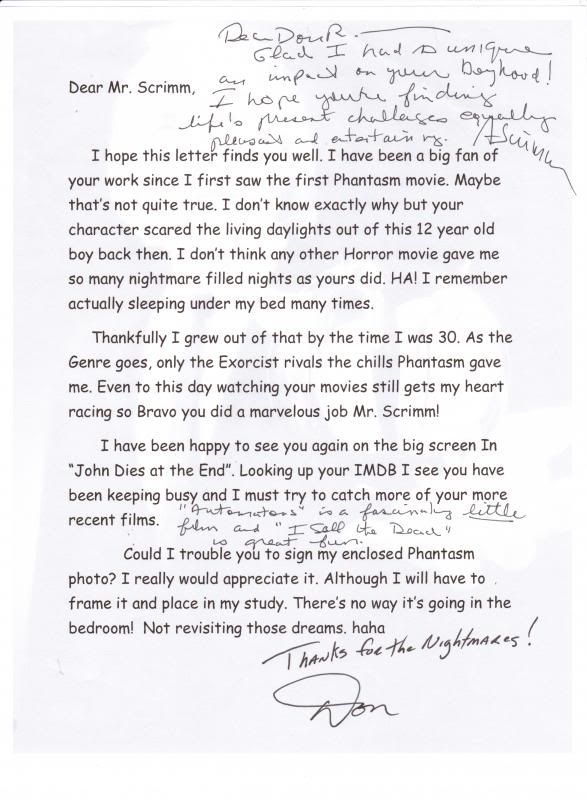 Dear Don R.
Glad I had so unique
an impact on your boyhood!
Dear Mr. Scrimm,
I hope you're finding
life's present challenges equally
pleasant and entertaining.
AScrimm
I hope this letter finds you well. I have been a big fan of
your work since I first saw the first Phantasm movie. Maybe
that's not quite true. I don't know exactly why but your
character scared the living daylights out of this 12 year old
boy back then. I don't think any other Horror movie gave me
so many nightmare filled nights as yours did. HA! I remember
actually sleeping under my bed many times.
Thankfully I grew out of that by the time I was 30. As the
Genre goes, only the Exorcist rivals the chills Phantasm gave
me. Even to this day watching your movies still gets my heart
racing so Bravo you did a marvelous job Mr. Scrimm!
I have been happy to see you again on the big screen In
"John Dies at the End". Looking up your IMDB I see you have
been keeping busy and I must try to catch more of your more
recent films. "Automatons" is a fascinating little
film and "I Sell the Dead"
is great fun.
Could I trouble you to sign my enclosed Phantasm
photo? I really would appreciate it. Although I will have to
frame it and place in my study. There's no way it's going in the
bedroom! Not revisiting those dreams. haha
Thanks for the Nightmares!
Don